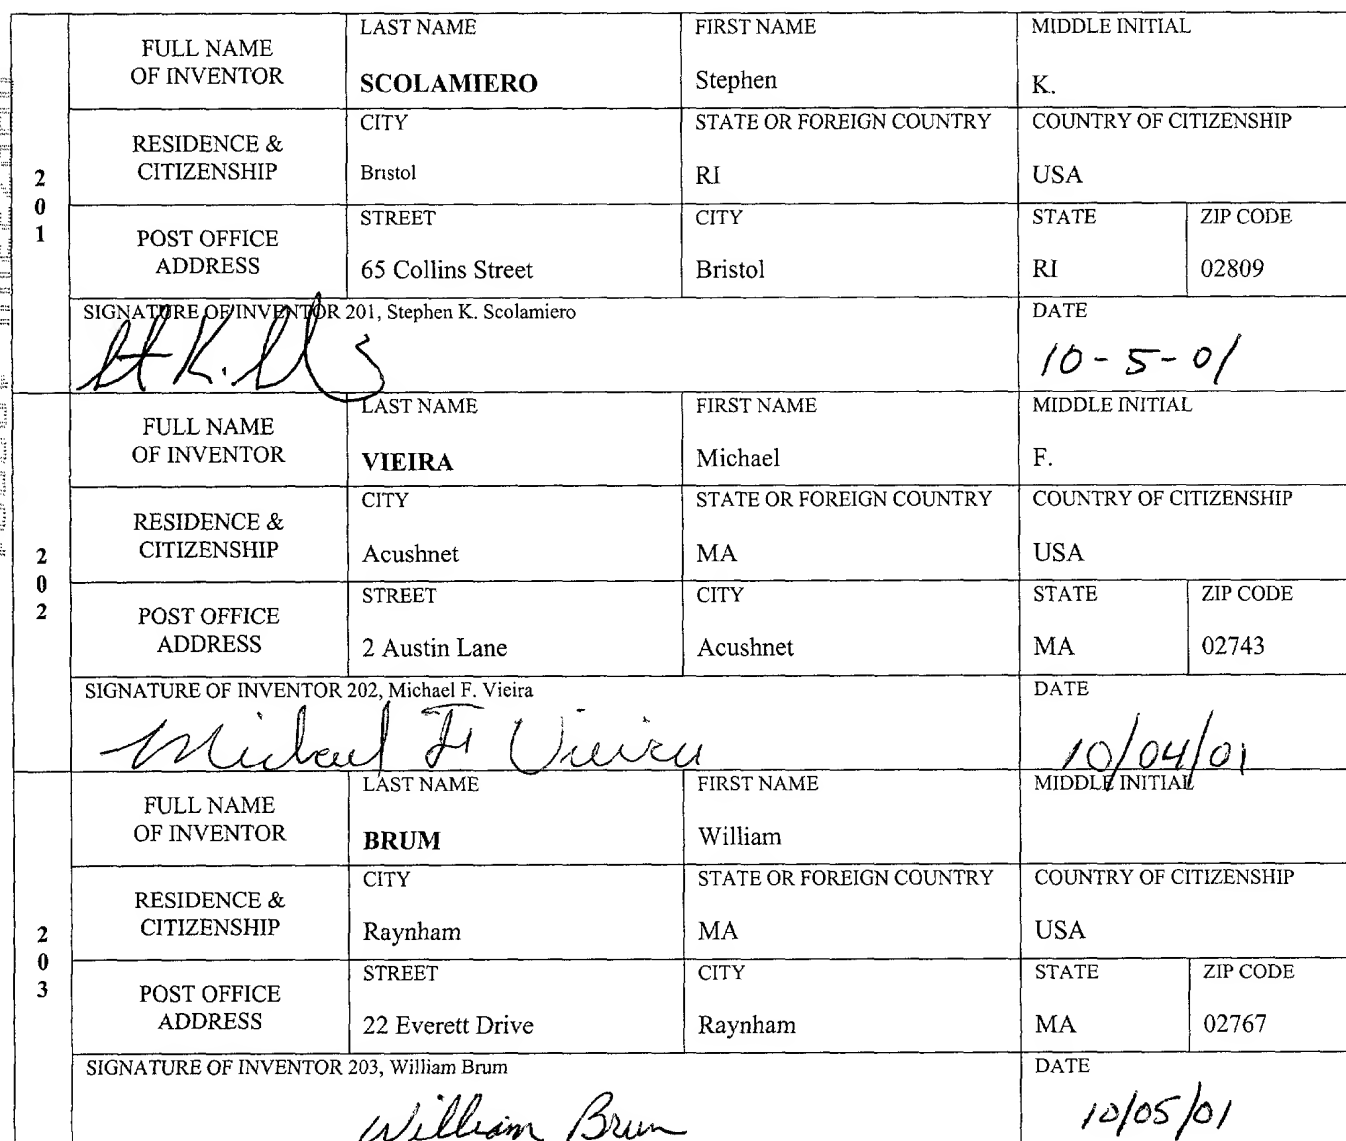 FULL NAME OF INVENTOR
LAST NAME
SCOLAMIERO
FIRST NAME
Stephen
MIDDLE INITIAL
K.
201
RESIDENCE & CITIZENSHIP
CITY
Bristol
STATE OR FOREIGN COUNTRY
RI
COUNTRY OF CITIZENSHIP
USA
POST OFFICE ADDRESS
STREET
65 Collins Street
CITY
Bristol
STATE
RI
ZIP CODE
02809
SIGNATURE OF INVENTOR 201, Stephen K. Scolamiero
DATE
10-5-01
FULL NAME OF INVENTOR
LAST NAME
VIEIRA
FIRST NAME
Michael
MIDDLE INITIAL
F.
202
RESIDENCE & CITIZENSHIP
CITY
Acushnet
STATE OR FOREIGN COUNTRY
MA
COUNTRY OF CITIZENSHIP
USA
POST OFFICE ADDRESS
STREET
2 Austin Lane
CITY
Acushnet
STATE
MA
ZIP CODE
02743
SIGNATURE OF INVENTOR 202, Michael F. Vieira
Michael F Vieira
DATE
10/04/01
FULL NAME OF INVENTOR
LAST NAME
BRUM
FIRST NAME
William
MIDDLE INITIAL
203
RESIDENCE & CITIZENSHIP
CITY
Raynham
STATE OR FOREIGN COUNTRY
MA
COUNTRY OF CITIZENSHIP
USA
POST OFFICE ADDRESS
STREET
22 Everett Drive
CITY
Raynham
STATE
MA
ZIP CODE
02767
SIGNATURE OF INVENTOR 203, William Brum
William Brum
DATE
10/05/01